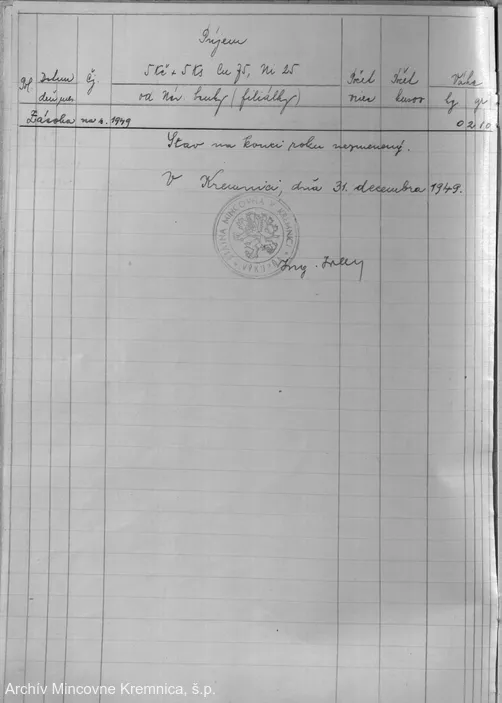 Príjem
5 Kč a 5 Ks Cu 75, Ni 25
Pol. Dátum Čj. Počet Počet Váha
od Nár. banky (filiálky) vriec kusov kg gr
Zásoba na r. 1949 0 210
Stav na konci roku nezmenený.
V Kremnici, dňa 31. decembra 1949.
ŠTÁTNA MINCOVŇA V KREMNICI
Ing.
Archív Mincovne Kremnica, š.p.